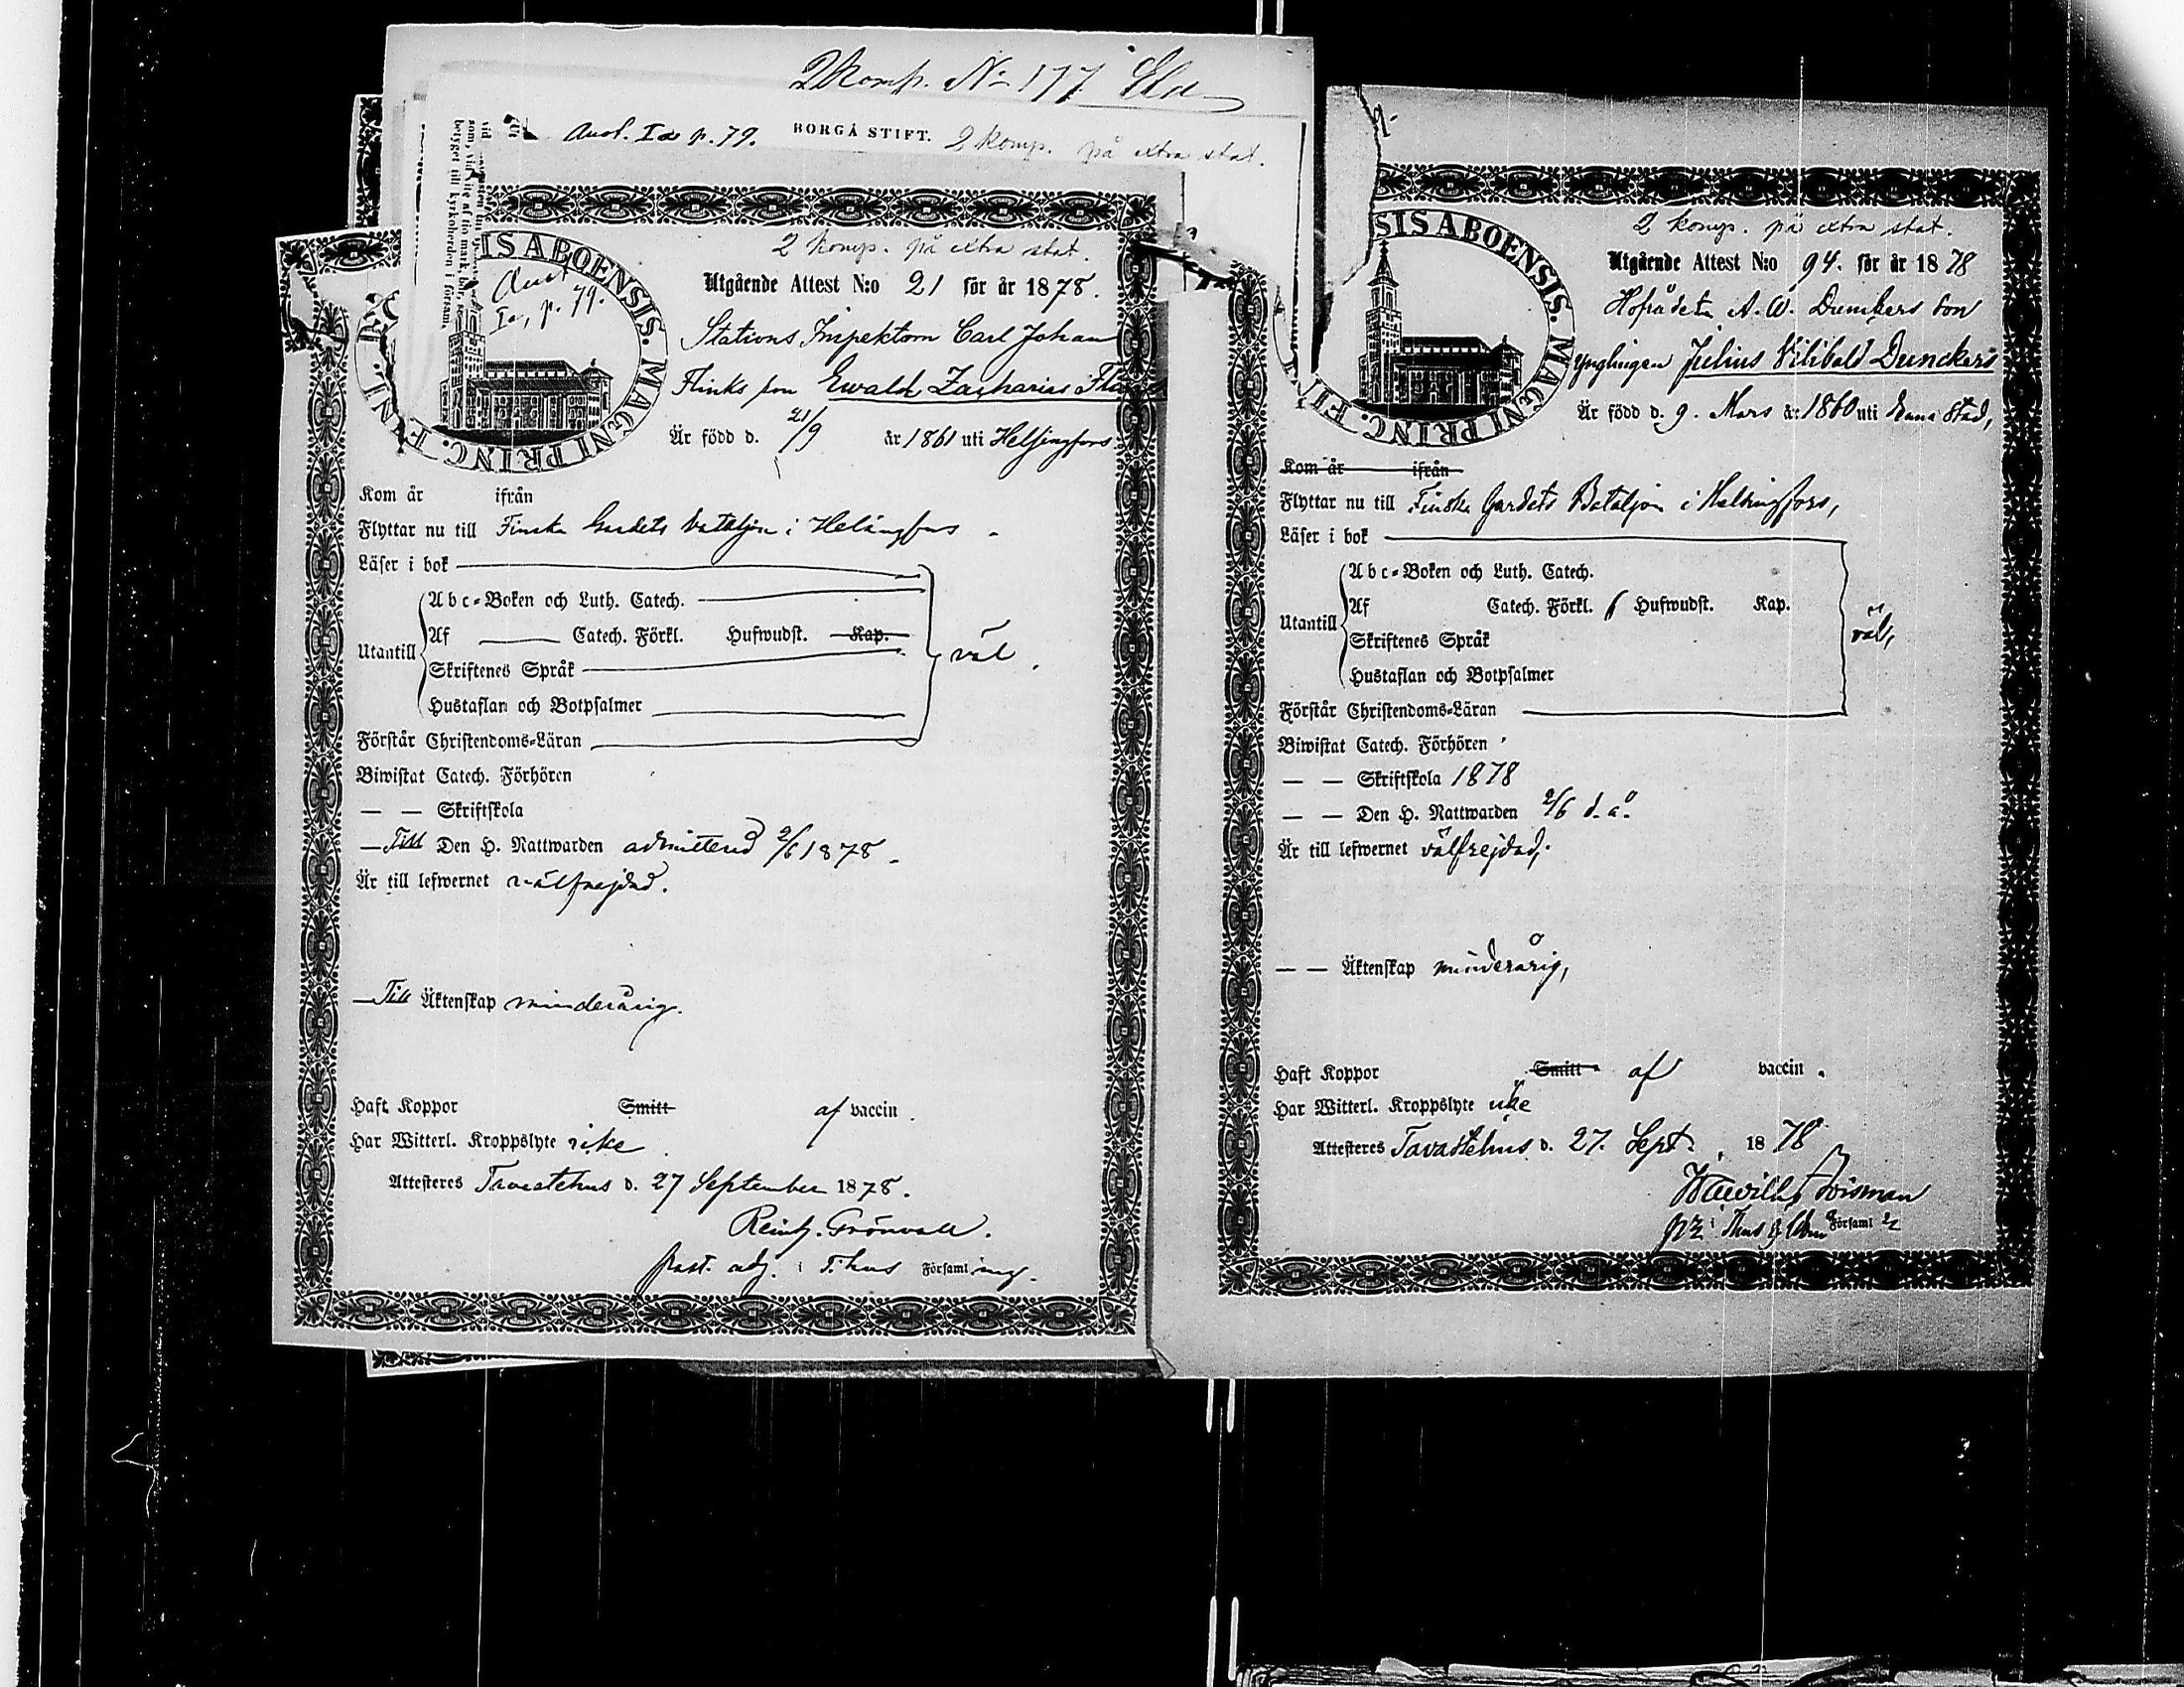 2 Komp. No 177
Ansl. Ia p. 79. BORGÅ STIFT. 2 komp. på extra stat.
som, vid
betyget till kyrkoherden i församl.
SIS ABOENSIS. MAGNI PRINC. FIN
Ansl. Ia, p. 79.
2 komp. på extra stat.
Utgående Attest N:o 21 för år 1878.
Stations Inspektorn Carl Johan
Flinks son Ewald Zacharias
Är född d. 21/9 år 1861 uti Helsingfors
Kom år ifrån
Flyttar nu till Finska Gardets bataljon i Helsingfors
Läser i bok
Utantill
Abc-Boken och Luth. Catech.
Af Catech. Förkl. Hufwudst. Kap.
Skriftenes Språk
Hustaflan och Botpsalmer
väl.
Förstår Christendoms-Läran
Biwistat Catech. Förhören
— — Skriftskola
— Till Den H. Nattwarden admitterad 2/6 1878.
Är till lefwernet välfrejdad.
— Till Äktenskap minderårig.
Haft Koppor Smitt af vaccin
Har Witterl. Kroppslyte icke
Attesteres Tavastehus d. 27 September 1878.
Reinh. Grönvall.
past. adj. i T:hus Församling.
SIS ABOENSIS. MAGNI PRINC. FI
2 komp. på extra stat.
Utgående Attest N:o 94. för år 1878
Hofrådets A. W. Dunckers son
Ynglingen Julius Vilibald Dunckers
Är född d. 9. Mars år 1860 uti denna stad,
Kom år ifrån
Flyttar nu till Finska Gardets Bataljon i Helsingfors,
Läser i bok
Utantill
Abc-Boken och Luth. Catech.
Af Catech. Förkl. Hufwudst. Kap.
Skriftenes Språk
Hustaflan och Botpsalmer
väl,
Förstår Christendoms-Läran
Biwistat Catech. Förhören
— — Skriftskola 1878
— — Den H. Nattwarden 2/6 d. å.
Är till lefwernet välfrejdad,
— — Äktenskap minderårig,
Haft Koppor Smitt af vaccin.
Har Witterl. Kroppslyte icke
Attesteres Tavastehus d. 27. Sept. 1878
Församl